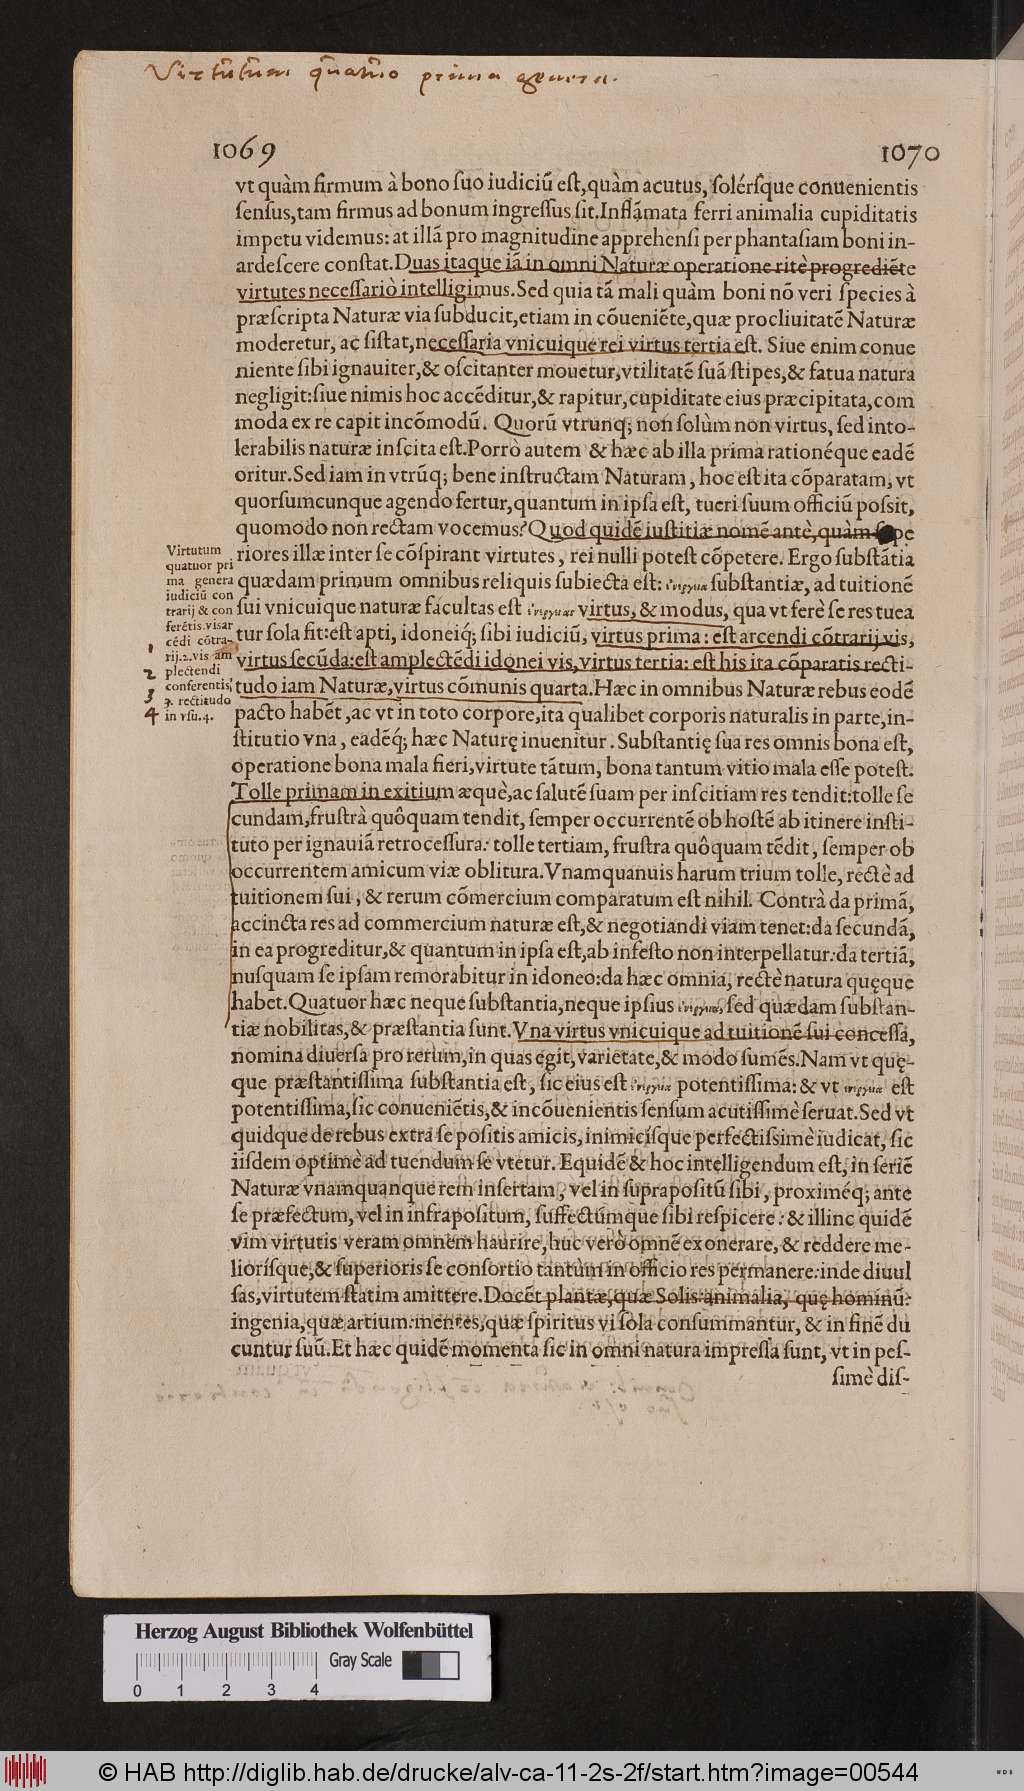 Virtutum quatuor prima genera.
1069 1070
vt quàm firmum à bono ſuo iudiciũ eſt, quàm acutus, ſolérſque conuenientis
ſenſus, tam firmus ad bonum ingreſſus ſit. Inflãmata ferri animalia cupiditatis
impetu videmus: at illã pro magnitudine apprehenſi per phantaſiam boni in-
ardeſcere conſtat. Duas itaque iã in omni Naturæ operatione ritè progrediẽte
virtutes neceſſariò intelligimus. Sed quia tã mali quàm boni nõ veri ſpecies à
præſcripta Naturæ via ſubducit, etiam in cõueniẽte, quæ procliuitatẽ Naturæ
moderetur, ac ſiſtat, neceſſaria vnicuique rei virtus tertia eſt. Siue enim conue
niente ſibi ignauiter, & oſcitanter mouetur, vtilitatẽ ſuã ſtipes, & fatua natura
negligit: ſiue nimis hoc accẽditur, & rapitur, cupiditate eius præcipitata, com
moda ex re capit incõmodũ. Quorũ vtrunq; non ſolùm non virtus, ſed into-
lerabilis naturæ inſcita eſt. Porrò autem & hæc ab illa prima rationéque eadẽ
oritur. Sed iam in vtrũq; bene inſtructam Naturam, hoc eſt ita cõparatam, vt
quorſumcunque agendo fertur, quantum in ipſa eſt, tueri ſuum officiũ poſsit,
quomodo non rectam vocemus? Quod quidẽ iuſtitiæ nomẽ antè, quàm ſupe
riores illæ inter ſe cõſpirant virtutes, rei nulli poteſt cõpetere. Ergo ſubſtãtia
quædam primum omnibus reliquis ſubiecta eſt: ἐνέργεια ſubſtantiæ, ad tuitionẽ
ſui vnicuique naturæ facultas eſt ἐνεργείας virtus, & modus, qua vt ferè ſe res tuea
tur ſola fit: eſt apti, idoneiq; ſibi iudiciũ, virtus prima: eſt arcendi cõtrarij vis,
virtus ſecũda: eſt amplectẽdi idonei vis, virtus tertia: eſt his ita cõparatis recti-
tudo iam Naturæ, virtus cõmunis quarta. Hæc in omnibus Naturæ rebus eodẽ
pacto habẽt, ac vt in toto corpore, ita qualibet corporis naturalis in parte, in-
ſtitutio vna, eadẽq; hæc Naturę inuenitur. Subſtantię ſua res omnis bona eſt,
operatione bona mala fieri, virtute tãtum, bona tantum vitio mala eſſe poteſt.
Tolle primam in exitium æquè, ac ſalutẽ ſuam per inſcitiam res tendit: tolle ſe
cundam, fruſtrà quôquam tendit, ſemper occurrentẽ ob hoſtẽ ab itinere inſti-
tuto per ignauiã retroceſſura: tolle tertiam, fruſtra quôquam tẽdit, ſemper ob
occurrentem amicum viæ oblitura. Vnamquanuis harum trium tolle, rectè ad
tuitionem ſui, & rerum cõmercium comparatum eſt nihil. Contrà da primã,
accincta res ad commercium naturæ eſt, & negotiandi viam tenet: da ſecundã,
in ea progreditur, & quantum in ipſa eſt, ab infeſto non interpellatur: da tertiã,
nuſquam ſe ipſam remorabitur in idoneo: da hæc omnia, rectè natura quęque
habet. Quatuor hæc neque ſubſtantia, neque ipſius ἐνέργεια, ſed quædam ſubſtan-
tiæ nobilitas, & præſtantia ſunt. Vna virtus vnicuique ad tuitionẽ ſui conceſſa,
nomina diuerſa pro rerum, in quas egit, varietate, & modo ſumẽs. Nam vt quę-
que præſtantiſſima ſubſtantia eſt, ſic eius eſt ἐνέργεια potentiſſima: & vt ἐνέργεια eſt
potentiſſima, ſic conueniẽtis, & incõuenientis ſenſum acutiſſimè ſeruat. Sed vt
quidque de rebus extra ſe poſitis amicis, inimiciſque perfectiſsimè iudicat, ſic
iiſdem optimè ad tuendum ſe vtetur. Equidẽ & hoc intelligendum eſt, in ſeriẽ
Naturæ vnamquanque rem inſertam, vel in ſuprapoſitũ ſibi, proximéq; ante
ſe præfectum, vel in infrapoſitum, ſuffectúmque ſibi reſpicere: & illinc quidẽ
vim virtutis veram omnem haurire, huc verò omnẽ exonerare, & reddere me-
lioríſque, & ſuperioris ſe conſortio tantùm in officio res permanere: inde diuul
ſas, virtutem ſtatim amittere. Docẽt plantæ, quæ Solis: animalia, quę hominũ:
ingenia, quæ artium: mentes, quæ ſpiritus vi ſola conſummantur, & in finẽ du
cuntur ſuũ. Et hæc quidẽ momenta ſic in omni natura impreſſa ſunt, vt in peſ-
ſimè diſ-
Virtutum
quatuor pri
ma genera
iudiciũ con
trarij & con
ferẽtis. vis ar
cẽdi cõtra-
rij. 2. vis am
plectendi
conferentis,
3. rectitudo
in vſu. 4.
1
2
3
4
Herzog August Bibliothek Wolfenbüttel
Gray Scale
0 1 2 3 4
© HAB http://diglib.hab.de/drucke/alv-ca-11-2s-2f/start.htm?image=00544
WDB